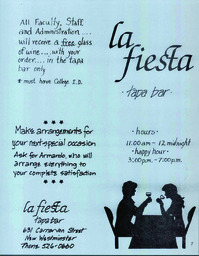 All Faculty, Staff
and Administration...
will receive a free glass
of wine....with your
order....in the tapa
bar only
* must have College I.D.
* * * * *
Make arrangements for
your next special occasion
Ask for Armando, who will
arrange everything to
your complete satisfaction
* * * * *
la fiesta
tapa bar
631 Carnarvon Street
New Westminster
Phone 526-0660
la
fiesta
· tapa bar ·
· hours ·
11:00 am - 12 midnight
· happy hour ·
3:00 p.m. - 7:00 p.m.